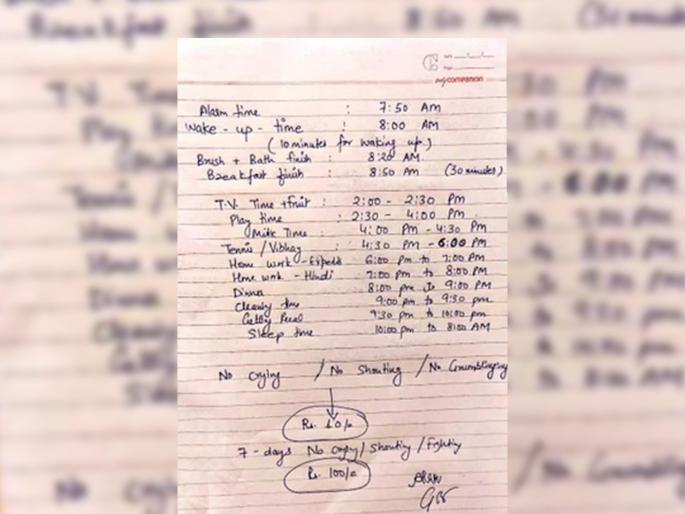 mycompanion
Alarm time : 7:50 AM
Wake-up-time : 8:00 AM
(10 minutes for waking up)
Brush + Bath finish : 8:20 AM
Breakfast finish : 8:50 AM (30 minutes)
T.V. Time + fruit : 2:00 - 2:30 Pm
Play time : 2:30 - 4:00 Pm
Milk Time : 4:00 Pm - 4:30 Pm
Tennis / Vibhay 4:30 PM - 6:00 Pm
Home work - 6:00 pm to 7:00 Pm
Home work - Hindi 7:00 pm to 8:00 PM
Dinner 8:00 pm to 9:00 PM
Cleaning time 9:00 pm to 9:30 pm
9:30 pm to 10:00 pm
Sleep time 10:00 pm to 8:00 AM
No Crying / No Shouting / No Grumblaying
Rs. 10/-
7-days No crying / Shouting / Fighting
Rs. 100/-